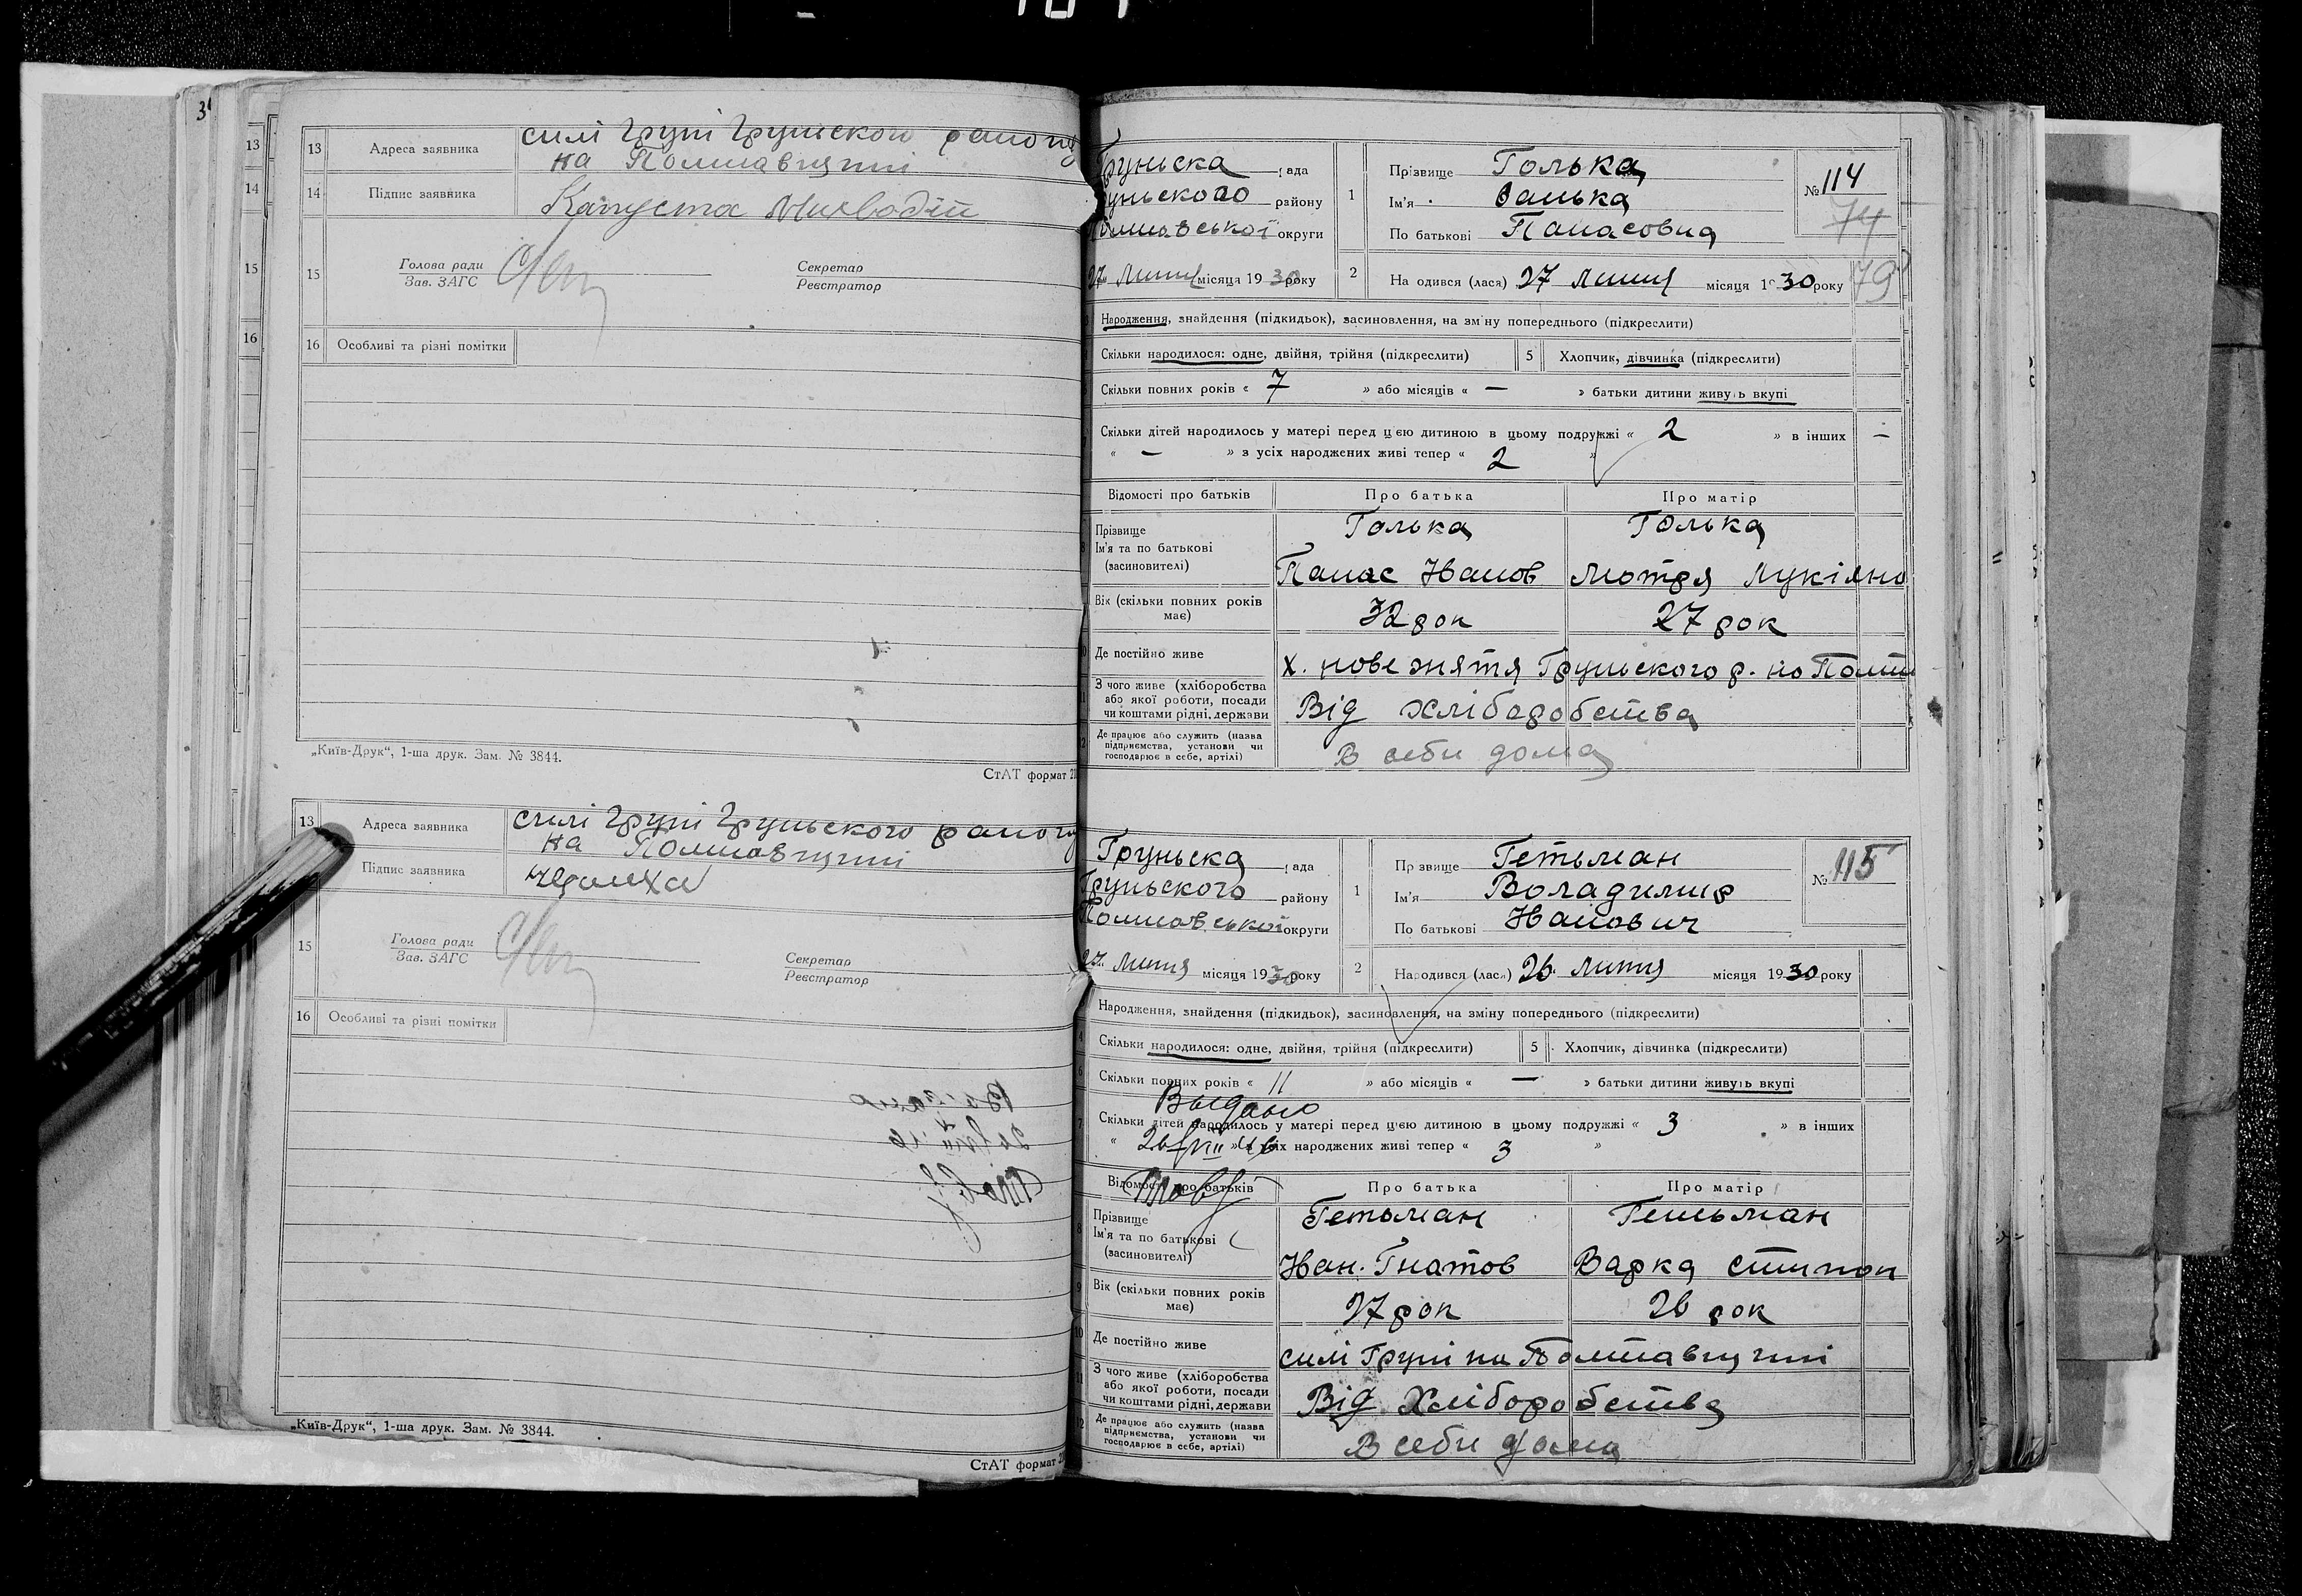 3
13
14
15
16
13 Адреса заявника силі Груні Груньского району
на Полтавщині
14 Підпис заявника Капуста
15 Голова ради Секретар
Зав. ЗАГС Реєстратор
16 Особливі та різні помітки
„Київ-Друк“, 1-ша друк. Зам. № 3844.
СтАТ формат
13 Адреса заявника силі Груні Груньского району
на Полтавщині
Підпис заявника
15 Голова ради Секретар
Зав. ЗАГС Реєстратор
16 Особливі та різні помітки
„Київ-Друк“, 1-ша друк. Зам. № 3844.
СтАТ формат
Груньска рада
Груньского району
Полтавської округи
27 Липня місяця 1930 року
1 Прізвище Голька
Ім'я Галька
По батькові Панасовна
№ 114
74
79
2 На одився (лася) 27 Липня місяця 1930 року
Народження, знайдення (підкидьок), засиновлення, на зміну попереднього (підкреслити)
Скільки народилося: одне, двійня, трійня (підкреслити) 5 Хлопчик, дівчинка (підкреслити)
Скільки повних років « 7 » або місяців « — » батьки дитини живуть вкупі
Скільки дітей народилось у матері перед цією дитиною в цьому подружжі « 2 » в інших —
« — » з усіх народжених живі тепер « 2 »
Відомості про батьків Про батька Про матір
Прізвище Голька Голька
Ім'я та по батькові
(засиновителі) Панас Іванов Мотря Лукіяно
Вік (скільки повних років має) 32 рок 27 рок
Де постійно живе х. нове життя Груньского р. на Полт
З чого живе (хліборобства
або якої роботи, посади
чи коштами рідні, держави Від хліборобства
Де працює або служить (назва
підприємства, установи чи
господарює в себе, артілі) В себи дома
Груньска рада
Груньского району
Полтавської округи
27 Липня місяця 1930 року
1 Пр звище Гетьман
Ім'я Воладимир
По батькові Іванович
№ 115
2 Народився (лася) 26 Липня місяця 1930 року
Народження, знайдення (підкидьок), засиновлення, на зміну попереднього (підкреслити)
4 Скільки народилося: одне, двійня, трійня (підкреслити) 5 Хлопчик, дівчинка (підкреслити)
6 Скільки повних років « 11 » або місяців « — » батьки дитини живуть вкупі
Выдано
7 Скільки дітей народилось у матері перед цією дитиною в цьому подружжі « 3 » в інших
« 26/VIII 46 » з усіх народжених живі тепер « 3 »
Відомості про батьків Про батька Про матір
8 Прізвище Гетьман Гетьман
Ім'я та по батькові
(засиновителі) Іван Гнатов Варка Стипан
9 Вік (скільки повних років має) 27 рок 26 рок
10 Де постійно живе силі Груні на Полтавщині
11 З чого живе (хліборобства
або якої роботи, посади
чи коштами рідні, держави Від Хліборобства
12 Де працює або служить (назва
підприємства, установи чи
господарює в себе, артілі) В себи дома